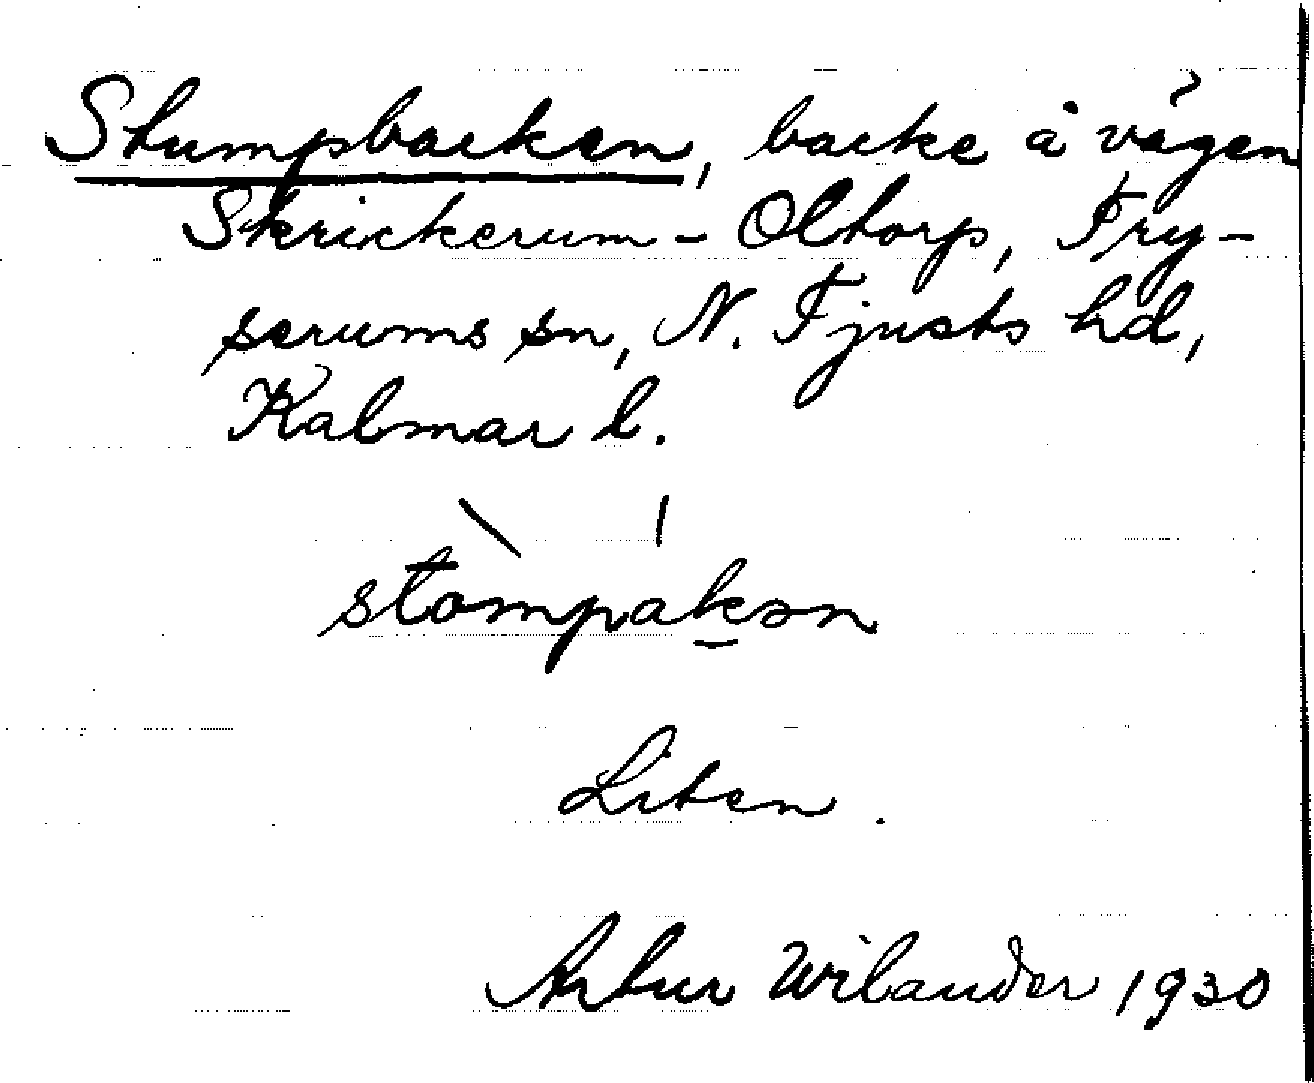 Stumpbacken, backe å vägen
Skrickerum - Oltorp, Try-
serums sn, N. Tjusts hd,
Kalmar l.
stompakən
Liten.
Artur Wilander 1930